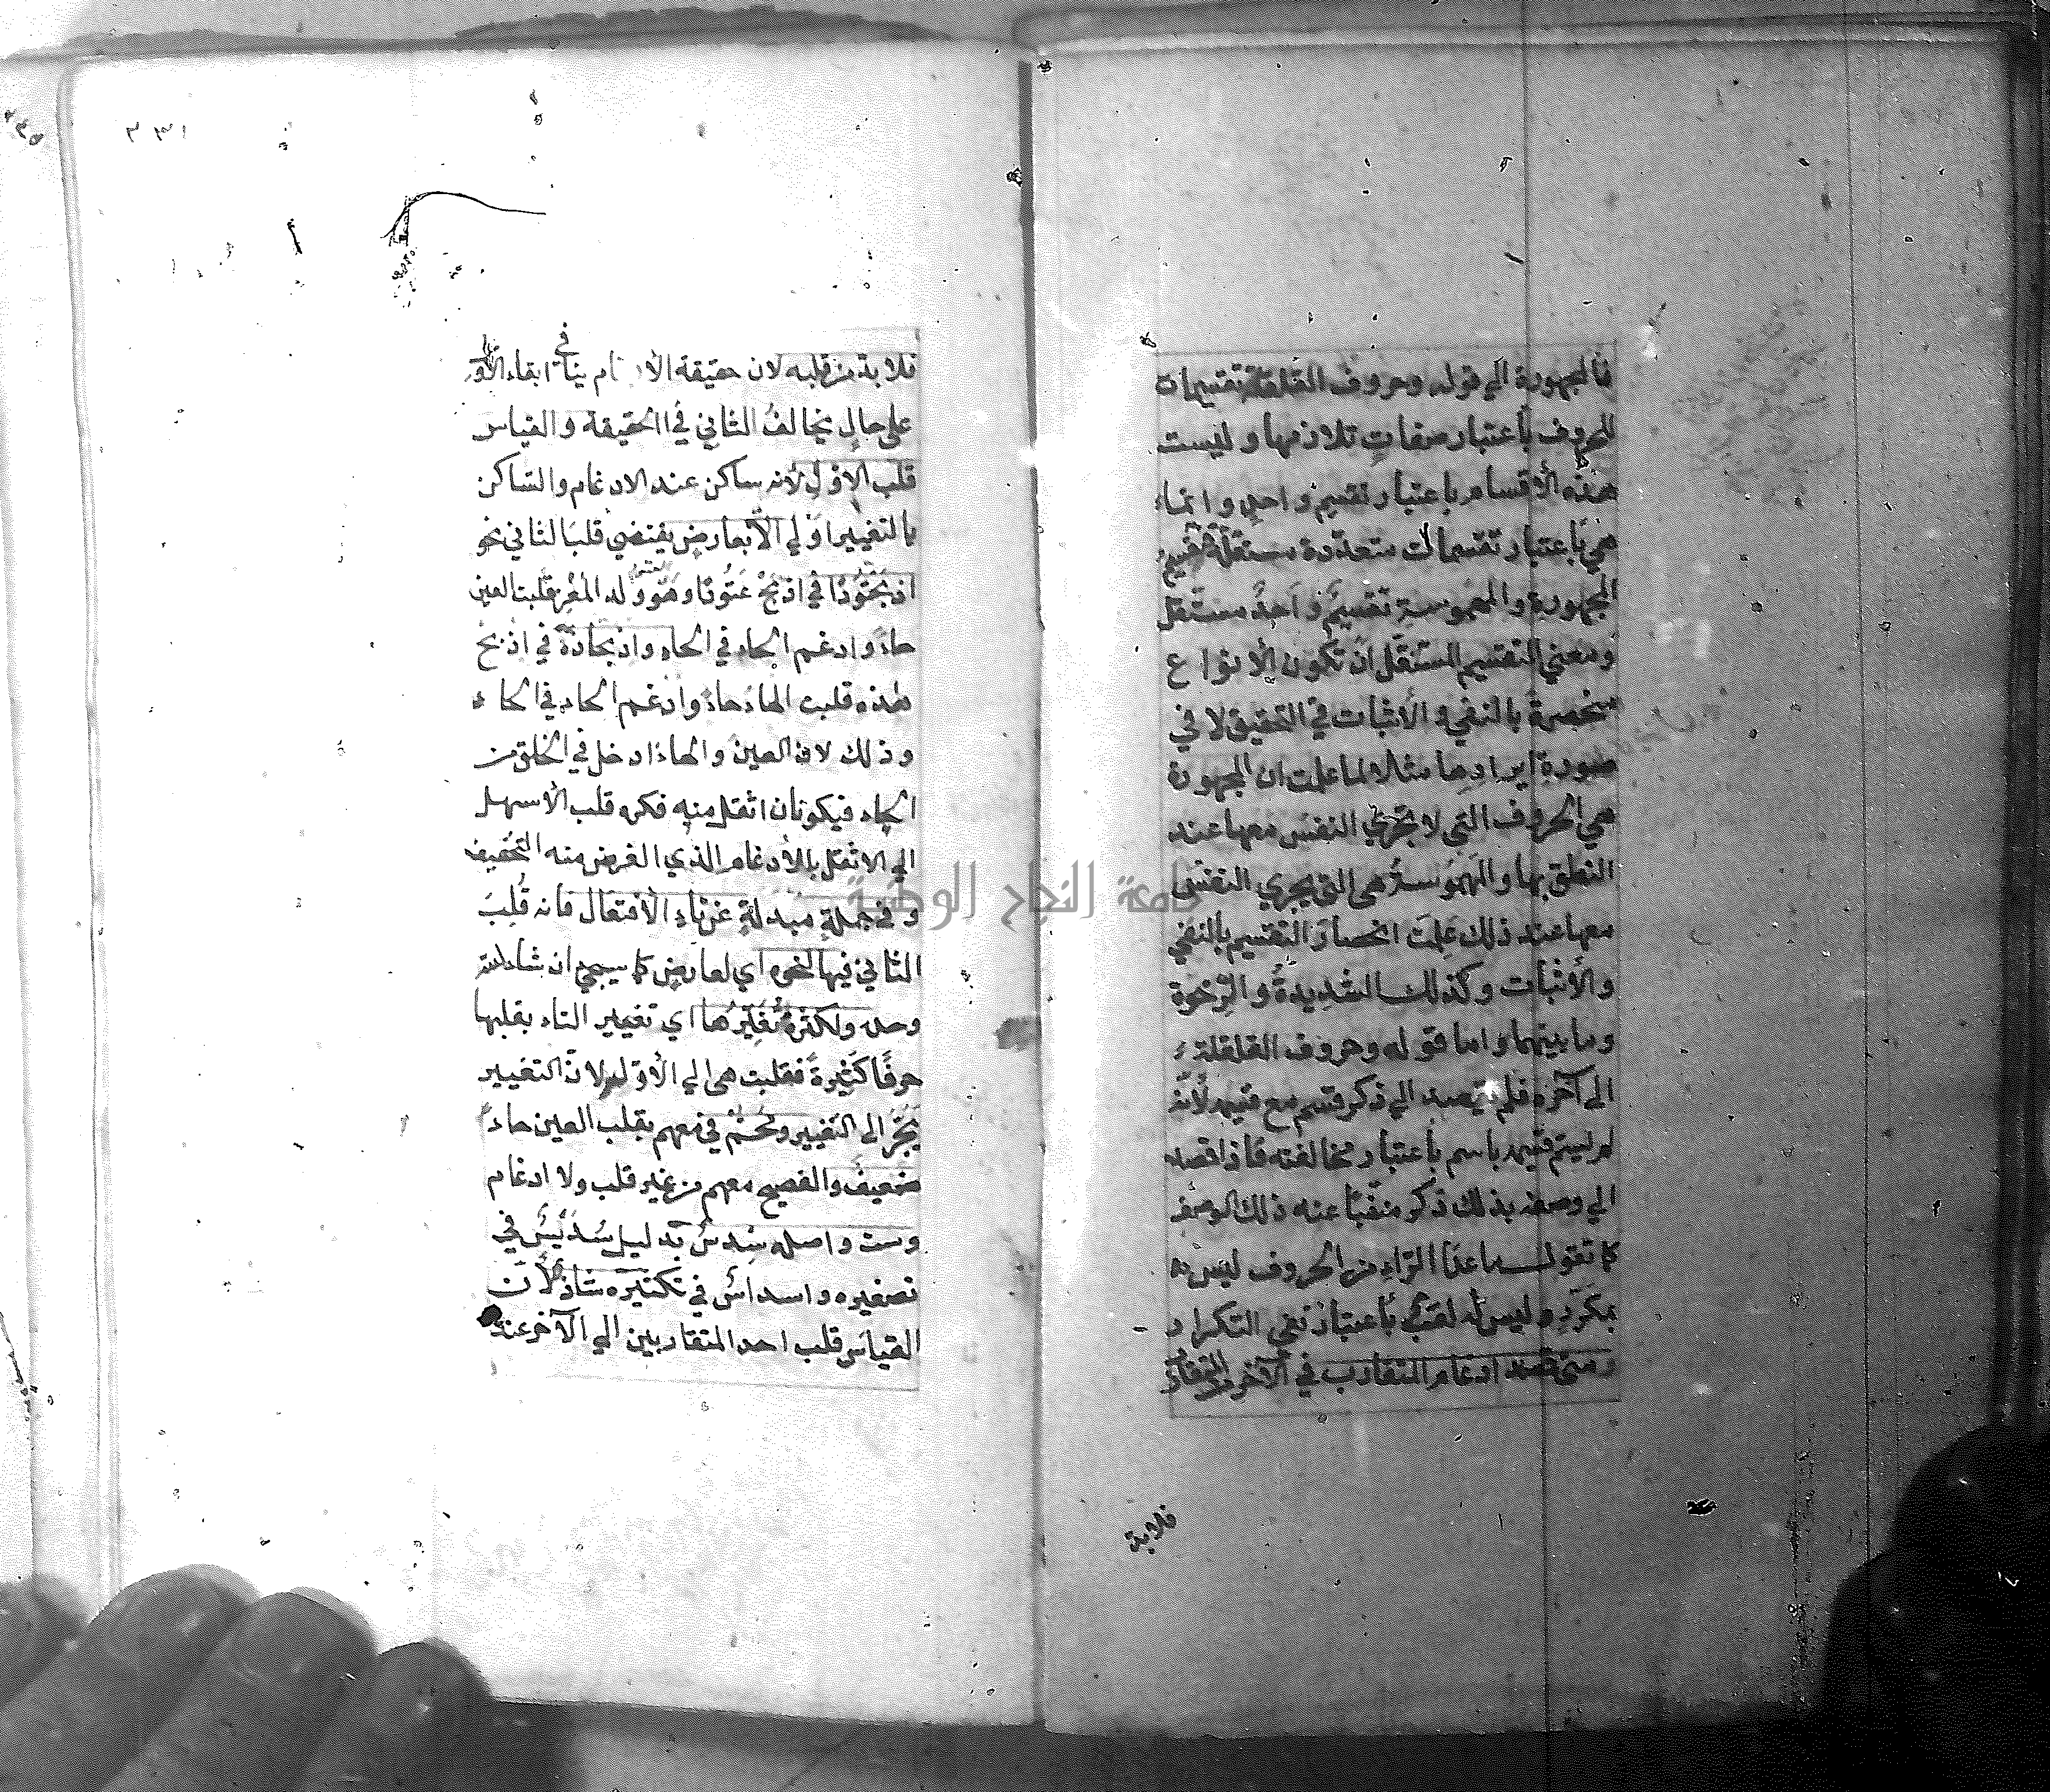 فالمجهورة الى قوله وحروف القلقلة تقسيمات
للحروف باعتبار صفات تلازمها وليست
هذه الأقسام باعتبار تقسيم واحد وانما
هي باعتبار تقسيمات متعددة مستقلة فتقسيم
المجهورة والمهموسة تقسيم واحد مستقل
ومعنى التقسيم المستقل ان تكون الأنواع
منحصرة بالنفي والأثبات في التحقيق لا في
صورة ايرادها مثلا لما علمت ان المجهورة
هي الحروف التي لا يجري النفس معها عند
النطق بها والمهموسة هي التي يجري النفس
معها عند ذلك علمت انحصار التقسيم بالنفي
والأثبات وكذلك الشديدة والرخوة
وما بينهما واما قوله وحروف القلقلة
الى آخره فلم يقصد الى ذكر قسم مع قسيمه لأنه
لم يسم قسيمه باسم باعتبار مخالفته فاذا قصد
الى وصفه بذلك ذكر منفيا عنه ذلك الوصف
كما تقول ما عدا الراء من الحروف ليس
بمكرر وليس له لقب باعتبار نفي التكرار
ومتى قصد ادغام المتقارب في الآخر المتقارب
فلا بد
٣٣١
فلا بد من قلبه لان حقيقة الأدغام ينافي ابقاء الأول
على حال يخالف الثاني في الحقيقة والقياس
قلب الاول لأنه ساكن عند الادغام والساكن
بالتغيير اولى الا لعارض يقتضي قلب الثاني نحو
اذبحتودا في اذبح عتودا وهو ولد المعز قلبت العين
حاء وادغم الحاء في الحاء واذبحاذه في اذبح
هذه قلبت الهاء حاء وادغم الحاء في الحاء
وذلك لان العين والهاء ادخل في الحلق من
الحاء فيكونان اثقل منه فكره قلب الأسهل
الى الاثقل بالأدغام الذي الغرض منه التخفيف
وفي جملة مبدلة عن تاء الأفتعال فانه قلب
الثاني فيها لنحوه اي لعارض كما سيجئ ان شاء الله
وحده ولكثرة تغيرها اي تغيير التاء بقلبها
حرفا كثيرة فقلبت هي الى الأول لان التغيير
يجر الى التغيير ومحم في معهم بقلب العين حاء
ضعيف والفصيح معهم من غير قلب ولا ادغام
وست واصله سدس بدليل سديس في
تصغيره واسداس في تكسيره شاذ لأن
القياس قلب احد المتقاربين الى الآخر عند
جامعة النجاح الوطنية